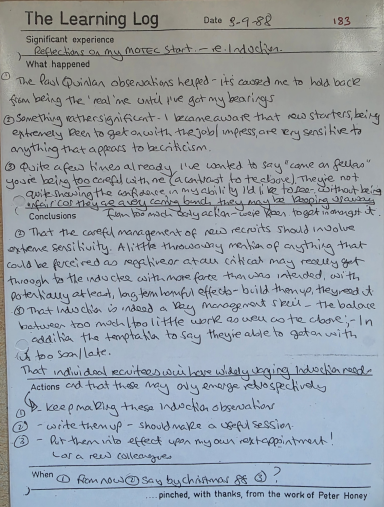 The Learning Log Date 9-9-88 183
Significant experience
Reflections on my MOTEC start - ie. Induction.
What happened
① The Paul Quinlan observations helped - its caused me to hold back
from being the 'real' me until I've got my bearings
② Something rather significant - I became aware that new starters, being
extremely keen to get on with the job/impress, are very sensitive to
anything that appears to be criticism.
③ Quite a few times already I've wanted to say "come on fellas"
you're being too careful with me (a contrast to the above). They're not
quite showing the confidence in my ability I'd like to see - without being
unfair cos they are a very caring bunch, they may be keeping us away
Conclusions from too much early action - we're keen to get in amongst it.
① That the careful management of new recruits should involve
extreme sensitivity. A little throwaway mention of anything that
could be perceived as negative or at all critical may really get
through to the inductee with more force than was intended, with
potentially at least, long term harmful effects - build them up, they need it
② That Induction is indeed a key management skill - the balance
between too much/too little work as well as the above; - In
addition the temptation to say they're able to get on with
it too soon/late.
That individual recruits will have widely varying Induction needs
Actions and that these may only emerge retrospectively
① keep making these Induction observations
② - write them up - should make a useful session.
③ - Put them into effect upon my own next appointment!
or a new colleagues
When ① From now ② say by Christmas 88 ③ ?
....pinched, with thanks, from the work of Peter Honey